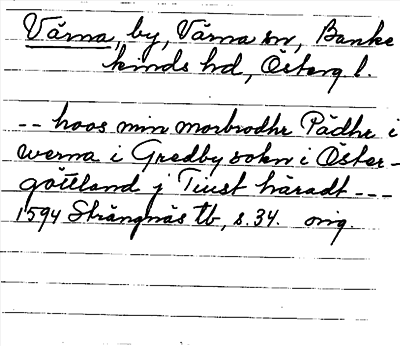 Värna, by, Värna sn, Banke
kinds hd, Österg l.
-- hoos min morbrodhr Pädhr i
werna i Gredby sokn i Öster-
göttland j Tiust häradt ---
1594 Strängnäs tb, s. 34. orig.